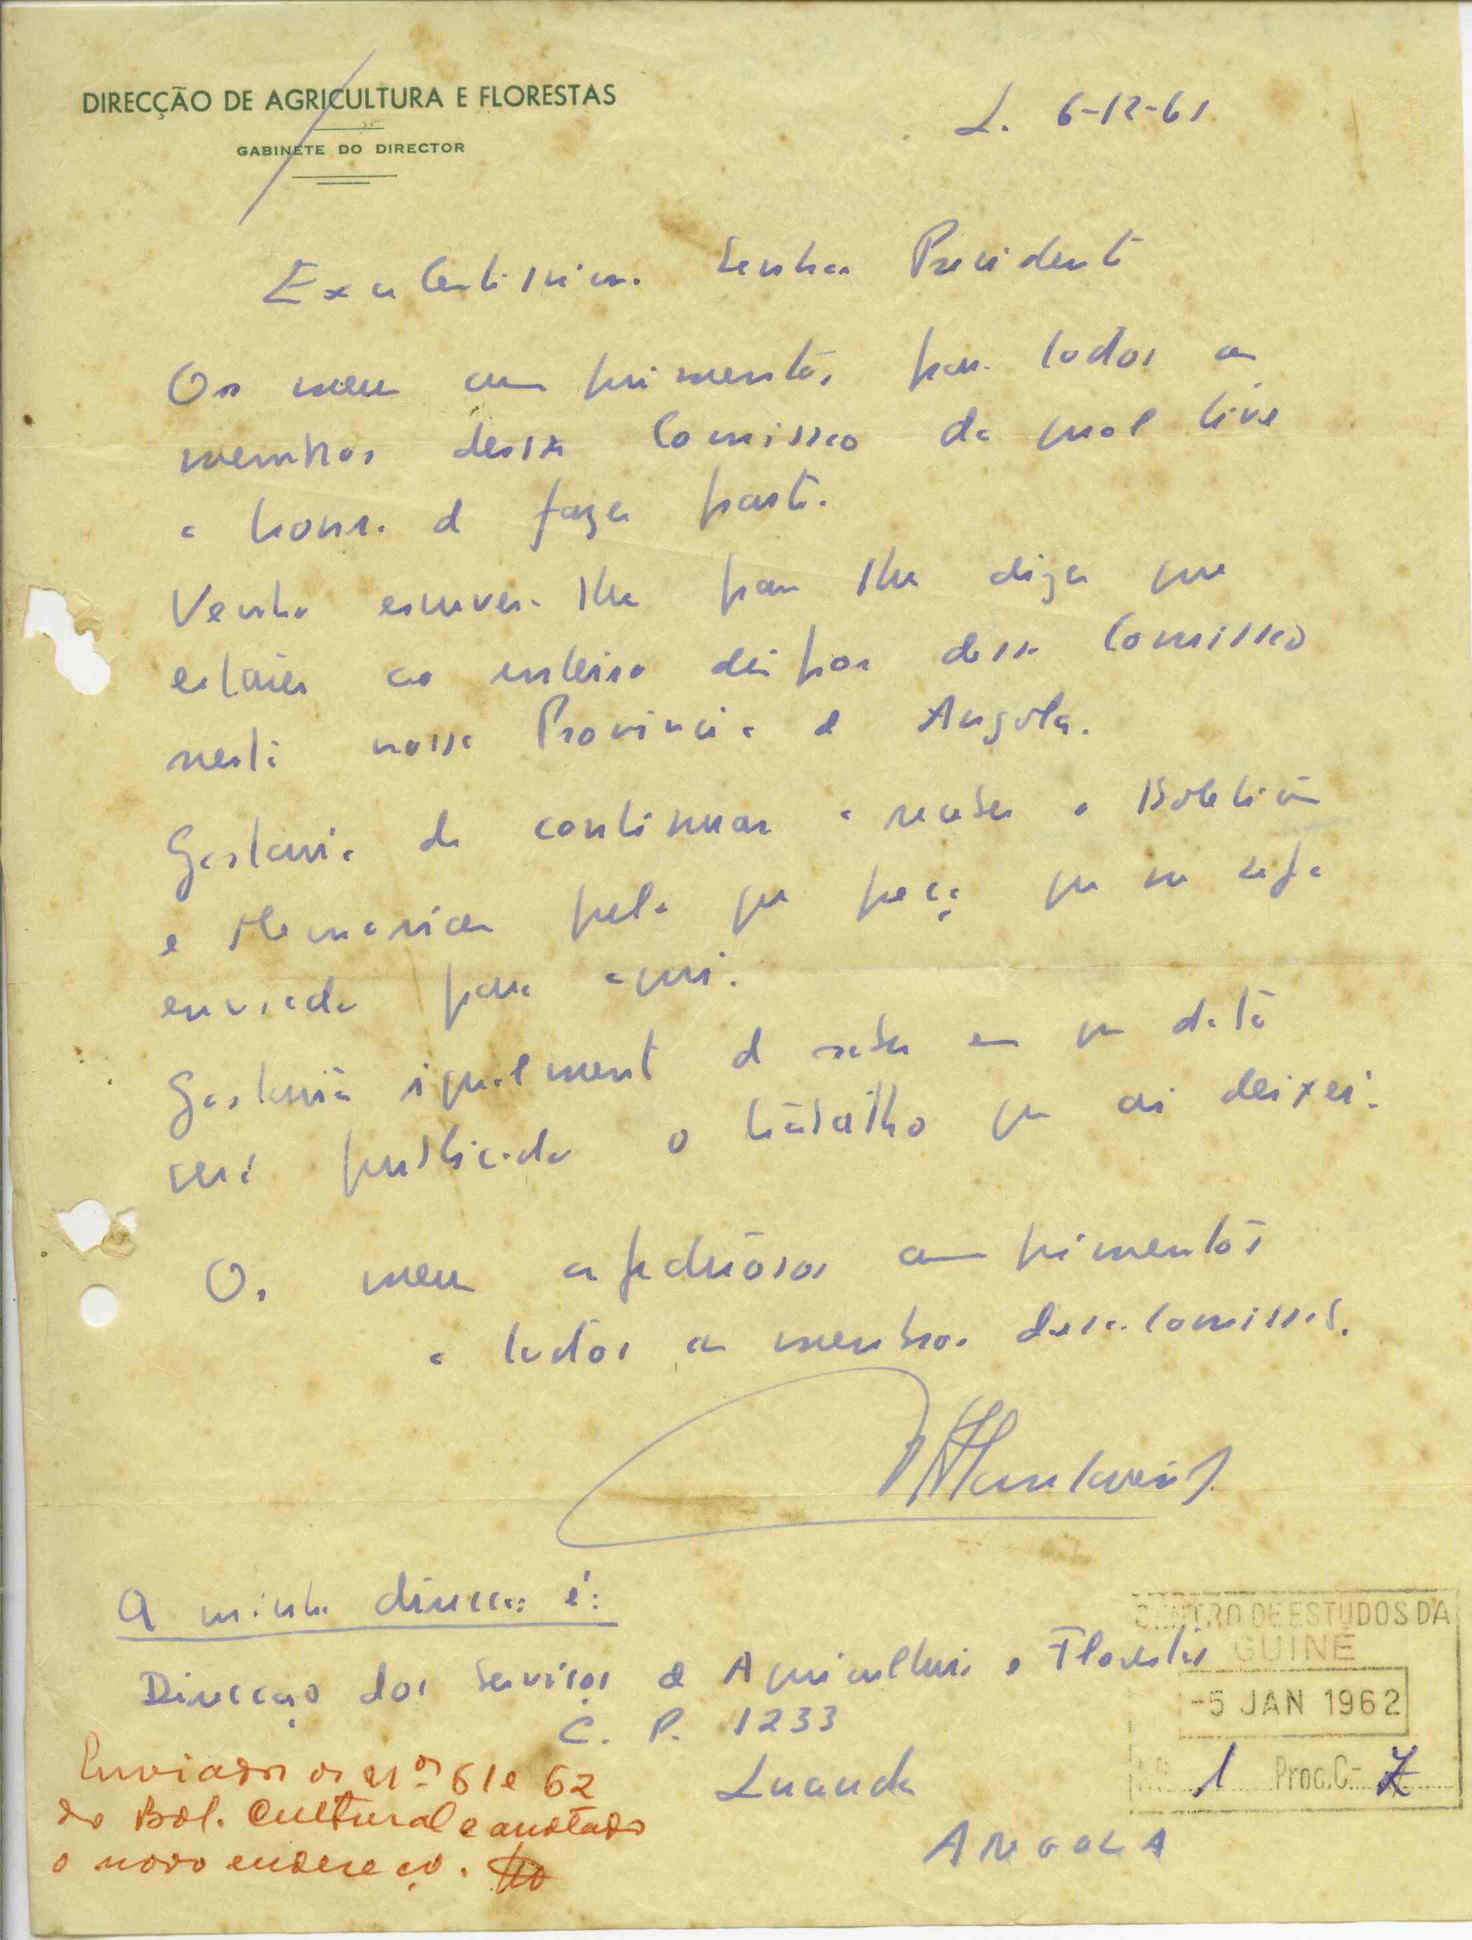 DIRECÇÃO DE AGRICULTURA E FLORESTAS
GABINETE DO DIRECTOR
L. 6-12-61
Excelentissimo Senhor Presidente
Os meus cumprimentos para todos os
membros dessa Comissão da qual tive
a honra de fazer parte.
Venho escrever-lhe para lhe dizer que
estarei ao inteiro dispor dessa Comissão
nesta nossa Provincia de Angola.
Gostaria de continuar a receber o Boletim
e Memorias pelo que peço que me seja
enviado para aqui.
Gostaria igualmente de saber em que data
será publicado o trabalho que aí deixei.
Os meus afectuosos cumprimentos
a todos os membros dessa Comissão.
A minha direcção é:
Direcção dos Serviços de Agricultura e Florestas
C. P. 1233
Luanda
ANGOLA
CENTRO DE ESTUDOS DA
GUINÉ
-5 JAN 1962
N.º 1 Proc. C- 7
Enviados os nos 61 e 62
do Bol. Cultural e anotado
o novo endereço.